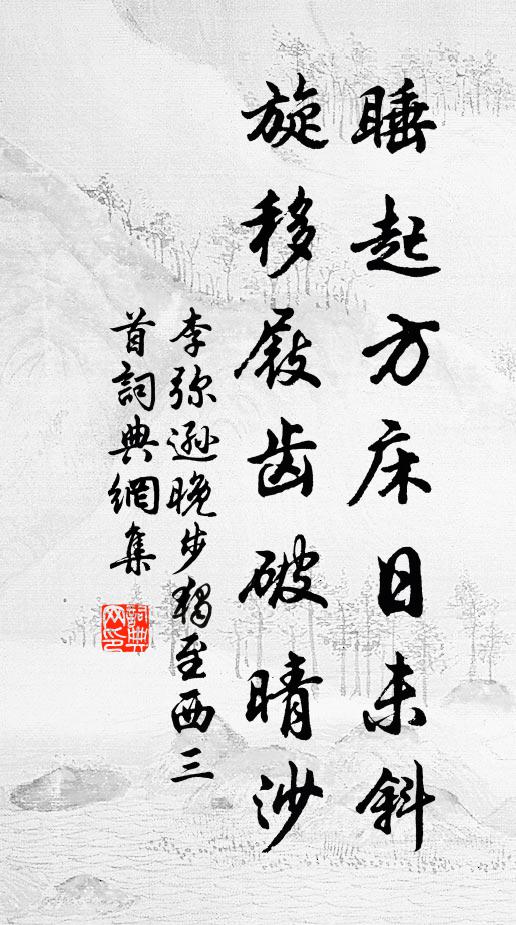 睡起方床日未斜
旋移屐齿破晴沙
李弥逊晚步獨至西三
首詞典網集
詞典網印